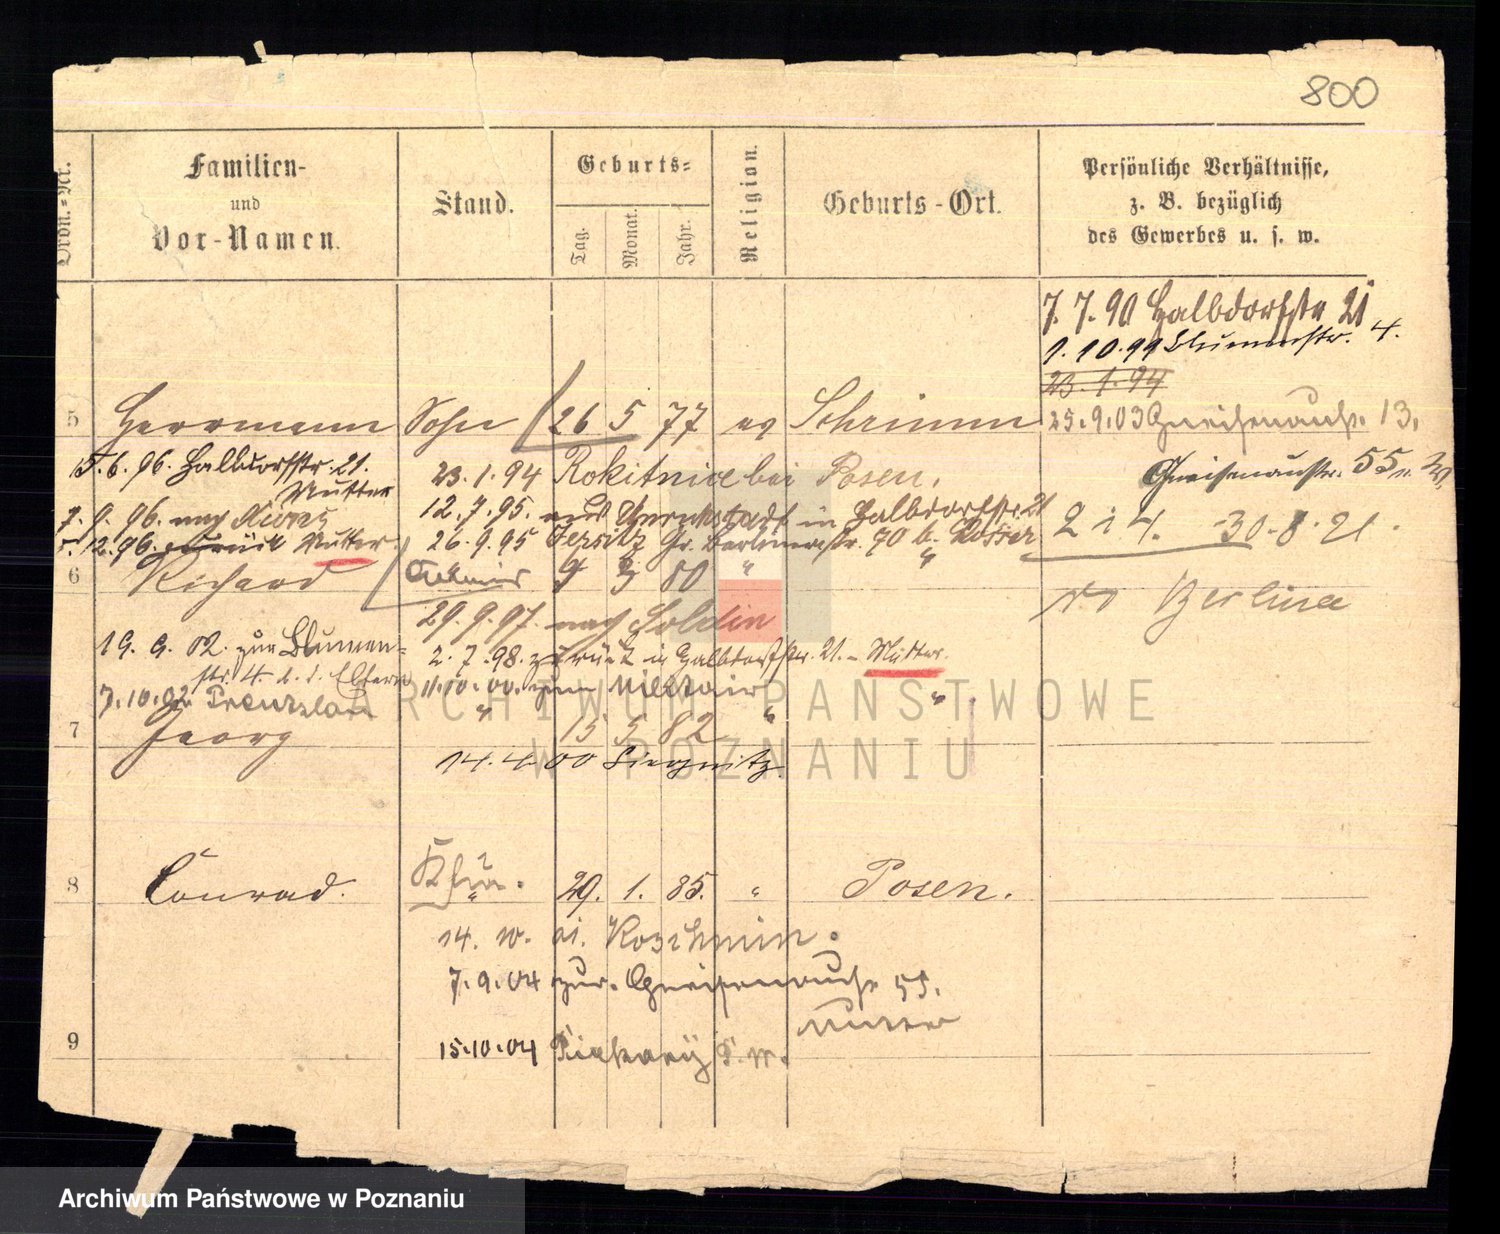 800
Ordn.=Nr.
Familien-
und
Vor-Namen.
Stand.
Geburts=
Tag.
Monat.
Jahr.
Religion.
Geburts-Ort.
Persönliche Verhältnisse,
z. B. bezüglich
des Gewerbes u. s. w.
7. 7. 90 Halbdorfstr 21
1. 10. 99 Blumenstr. 4.
23. 1. 94
5 Herrmann Sohn 26 5 77 ev Schrimm 25. 9. 03 Gneisenaustr. 13.
15. 6. 96. Halbdorfstr. 21.
Mutter
23. 1. 94 Rokitnice bei Posen.
Gneisenaustr. 55
7. 9. 96. nach
12. 7. 95. aus in Halbdorfstr. 21
12. 96. zurück Mutter
26. 9. 95 Jersitz Gr. Berlinerstr. 90 b.
30. 8. 21.
6 Richard 9 3 80 "
n. Berlin
29. 9. 97. nach Soldin
19. 9. 02. zur Blumen-
str. 4. b. d. Eltern
2. 7. 98. zurück in Halbdorfstr. 21. - Mutter.
7. 10. 02 Prenzlau
11. 10. 00. zum Militair
7 Georg " 15 5 82 " "
14. 4. 00 Liegnitz
8 Conrad. 29. 1. 85. " Posen.
14. Koschmin.
7. 9. 04 zur. Gneisenaustr 55.
Mutter
9
15. 10. 04
ARCHIWUM PAŃSTWOWE
W POZNANIU
Archiwum Państwowe w Poznaniu